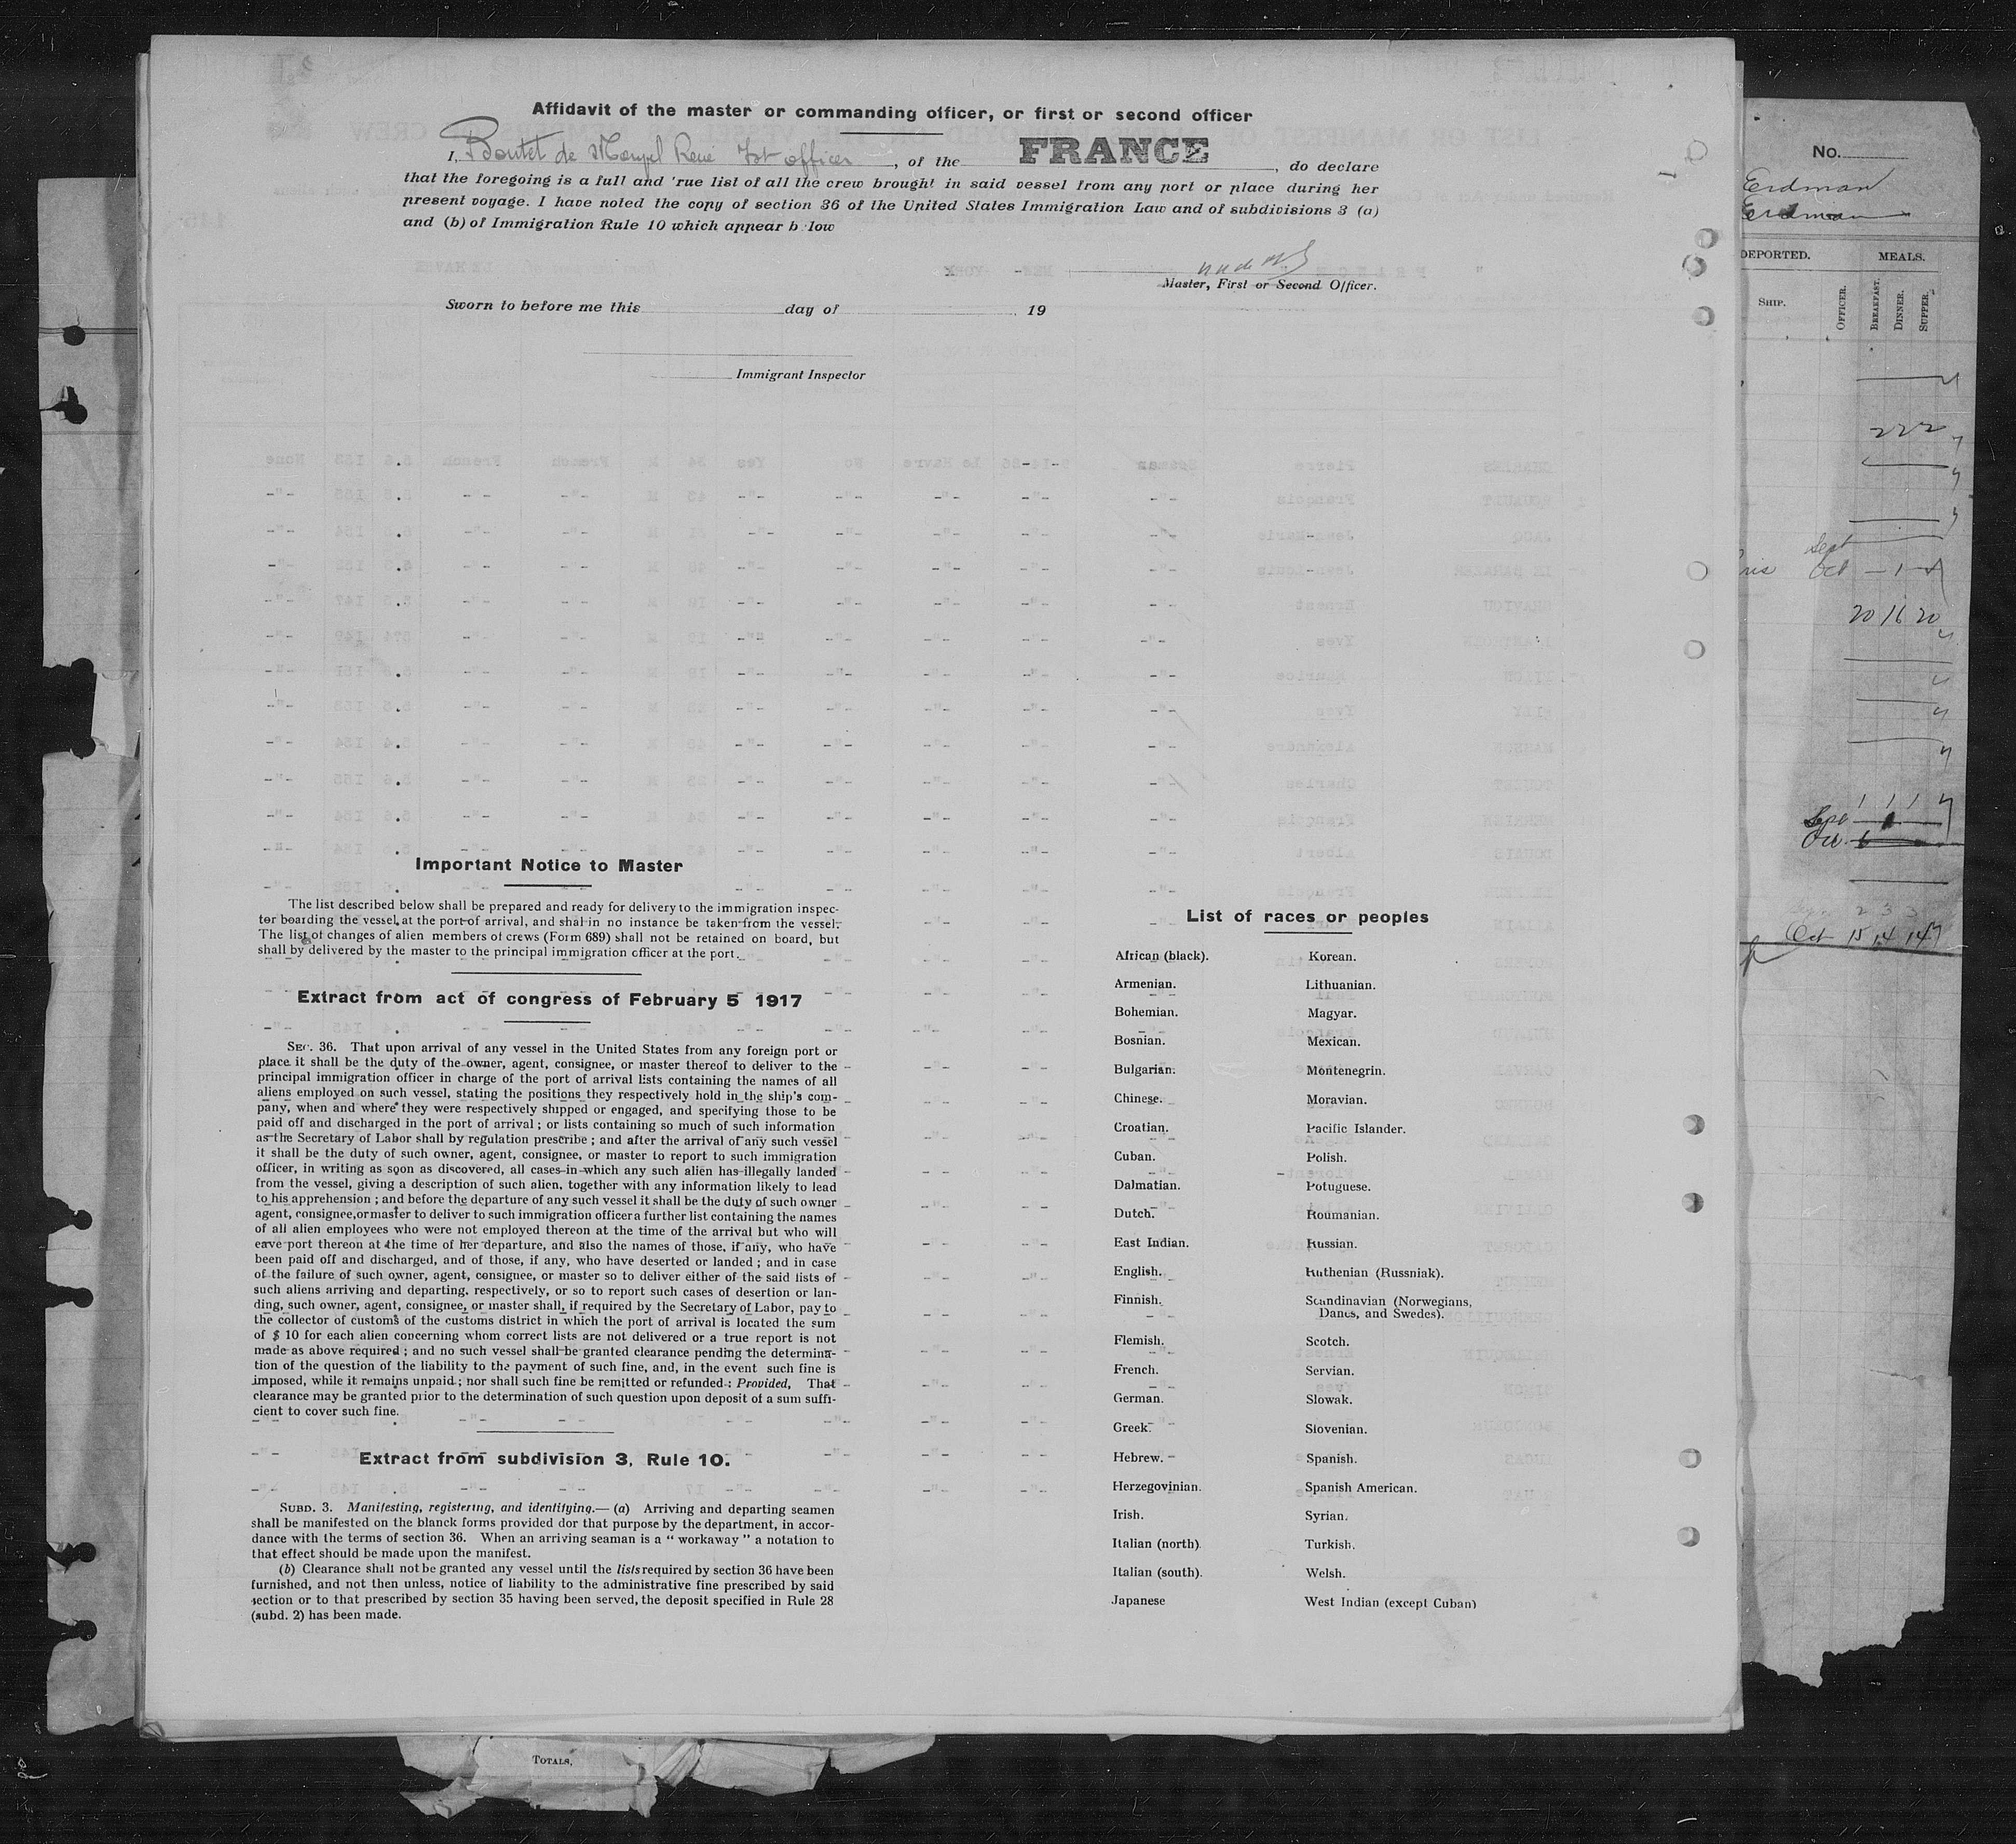 Affidavit of the master or commanding officer, or first or second officer
I, Boutet de Monvel René 1st officer, of the FRANCE, do declare
that the foregoing is a full and 'rue list of all the crew brought in said vessel from any port or place during her
present voyage. I have noted the copy of section 36 of the United States Immigration Law and of subdivisions 3 (a)
and (b) of Immigration Rule 10 which appear b low
Master, First or Second Officer.
Sworn to before me this day of 19
Immigrant Inspector
Important Notice to Master
The list described below shall be prepared and ready for delivery to the immigration inspec-
tor boarding the vessel at the port of arrival, and shal in no instance be taken from the vessel.
The list of changes of alien members of crews (Form 689) shall not be retained on board, but
shall by delivered by the master to the principal immigration officer at the port.
Extract from act of congress of February 5 1917
SEC. 36. That upon arrival of any vessel in the United States from any foreign port or
place it shall be the duty of the owner, agent, consignee, or master thereof to deliver to the
principal immigration officer in charge of the port of arrival lists containing the names of all
aliens employed on such vessel, stating the positions they respectively hold in the ship's com-
pany, when and where they were respectively shipped or engaged, and specifying those to be
paid off and discharged in the port of arrival ; or lists containing so much of such information
as the Secretary of Labor shall by regulation prescribe ; and after the arrival of any such vessel
it shall be the duty of such owner, agent, consignee, or master to report to such immigration
officer, in writing as soon as discovered, all cases in which any such alien has illegally landed
from the vessel, giving a description of such alien, together with any information likely to lead
to his apprehension ; and before the departure of any such vessel it shall be the duty of such owner
agent, consignee, or master to deliver to such immigration officer a further list containing the names
of all alien employees who were not employed thereon at the time of the arrival but who will
eave port thereon at the time of her departure, and also the names of those, if any, who have
been paid off and discharged, and of those, if any, who have deserted or landed ; and in case
of the failure of such owner, agent, consignee, or master so to deliver either of the said lists of
such aliens arriving and departing, respectively, or so to report such cases of desertion or lan-
ding, such owner, agent, consignee, or master shall, if required by the Secretary of Labor, pay to
the collector of customs of the customs district in which the port of arrival is located the sum
of $ 10 for each alien concerning whom correct lists are not delivered or a true report is not
made as above required ; and no such vessel shall be granted clearance pending the determina-
tion of the question of the liability to the payment of such fine, and, in the event such fine is
imposed, while it remains unpaid ; nor shall such fine be remitted or refunded : Provided, That
clearance may be granted prior to the determination of such question upon deposit of a sum suffi-
cient to cover such fine.
Extract from subdivision 3, Rule 10.
SUBD. 3. Manifesting, registering, and identifying.— (a) Arriving and departing seamen
shall be manifested on the blanck forms provided dor that purpose by the department, in accor-
dance with the terms of section 36. When an arriving seaman is a “ workaway ” a notation to
that effect should be made upon the manifest.
(b) Clearance shall not be granted any vessel until the lists required by section 36 have been
furnished, and not then unless, notice of liability to the administrative fine prescribed by said
section or to that prescribed by section 35 having been served, the deposit specified in Rule 28
(subd. 2) has been made.
List of races or peoples
African (black).
Armenian.
Bohemian.
Bosnian.
Bulgarian.
Chinese.
Croatian.
Cuban.
Dalmatian.
Dutch.
East Indian.
English.
Finnish.
Flemish.
French.
German.
Greek.
Hebrew.
Herzegovinian.
Irish.
Italian (north).
Italian (south).
Japanese
Korean.
Lithuanian.
Magyar.
Mexican.
Montenegrin.
Moravian.
Pacific Islander.
Polish.
Potuguese.
Roumanian.
Russian.
Ruthenian (Russniak).
Scandinavian (Norwegians,
Danes, and Swedes).
Scotch.
Servian.
Slowak.
Slovenian.
Spanish.
Spanish American.
Syrian.
Turkish.
Welsh.
West Indian (except Cuban)
No.
Erdman
Erdman
DEPORTED. MEALS.
SHIP. OFFICER. BREAKFAST. DINNER. SUPPER.
2 2 2
Sept
Oct - 1 -
20 16 20
1 1 1
Sept
Oct
2 3 3
Oct 15 14 14
TOTALS,